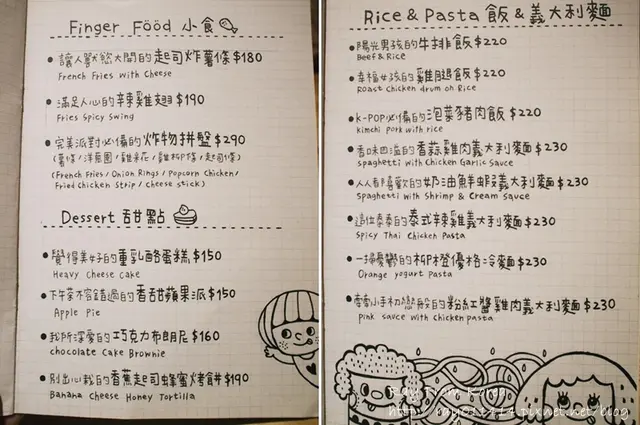 Finger Fööd 小食
讓人獸慾大開的起司炸薯條 $180
French Fries with Cheese
滿足人心的辣雞翅 $190
Fries Spicy Swing
完美派對必備的炸物拼盤 $290
(薯條/洋蔥圈/雞米花/雞柳條/起司條)
(French Fries/Onion Rings/Popcorn Chicken/
Fried Chicken Strip/cheese stick)
Dessert 甜點
覺得美好的重乳酪蛋糕 $150
Heavy Cheese Cake
下午茶不容錯過的香甜蘋果派 $150
Apple Pie
我所深愛的巧克力布朗尼 $160
chocolate Cake Brownie
別出心裁的香蕉起司蜂蜜烤餅 $190
Banana Cheese Honey Tortilla
Rice & Pasta 飯 & 義大利麵
陽光男孩的牛排飯 $220
Beef & Rice
幸福女孩的雞腿飯 $220
Roast Chicken drum on Rice
K-POP必備的泡菜豬肉飯 $220
kimchi pork with rice
香味四溢的香蒜雞肉義大利麵 $230
spaghetti with Chicken Garlic Sauce
人人都喜歡的奶油鮮蝦義大利麵 $230
Spaghetti with Shrimp & Cream sauce
這位泰泰的泰式辣雞義大利麵 $230
Spicy Thai Chicken Pasta
一掃憂鬱的柳橙優格冷麵 $230
Orange yogurt pasta
牽牽小手初戀般的粉紅醬雞肉義大利麵 $230
Pink sauce with chicken pasta